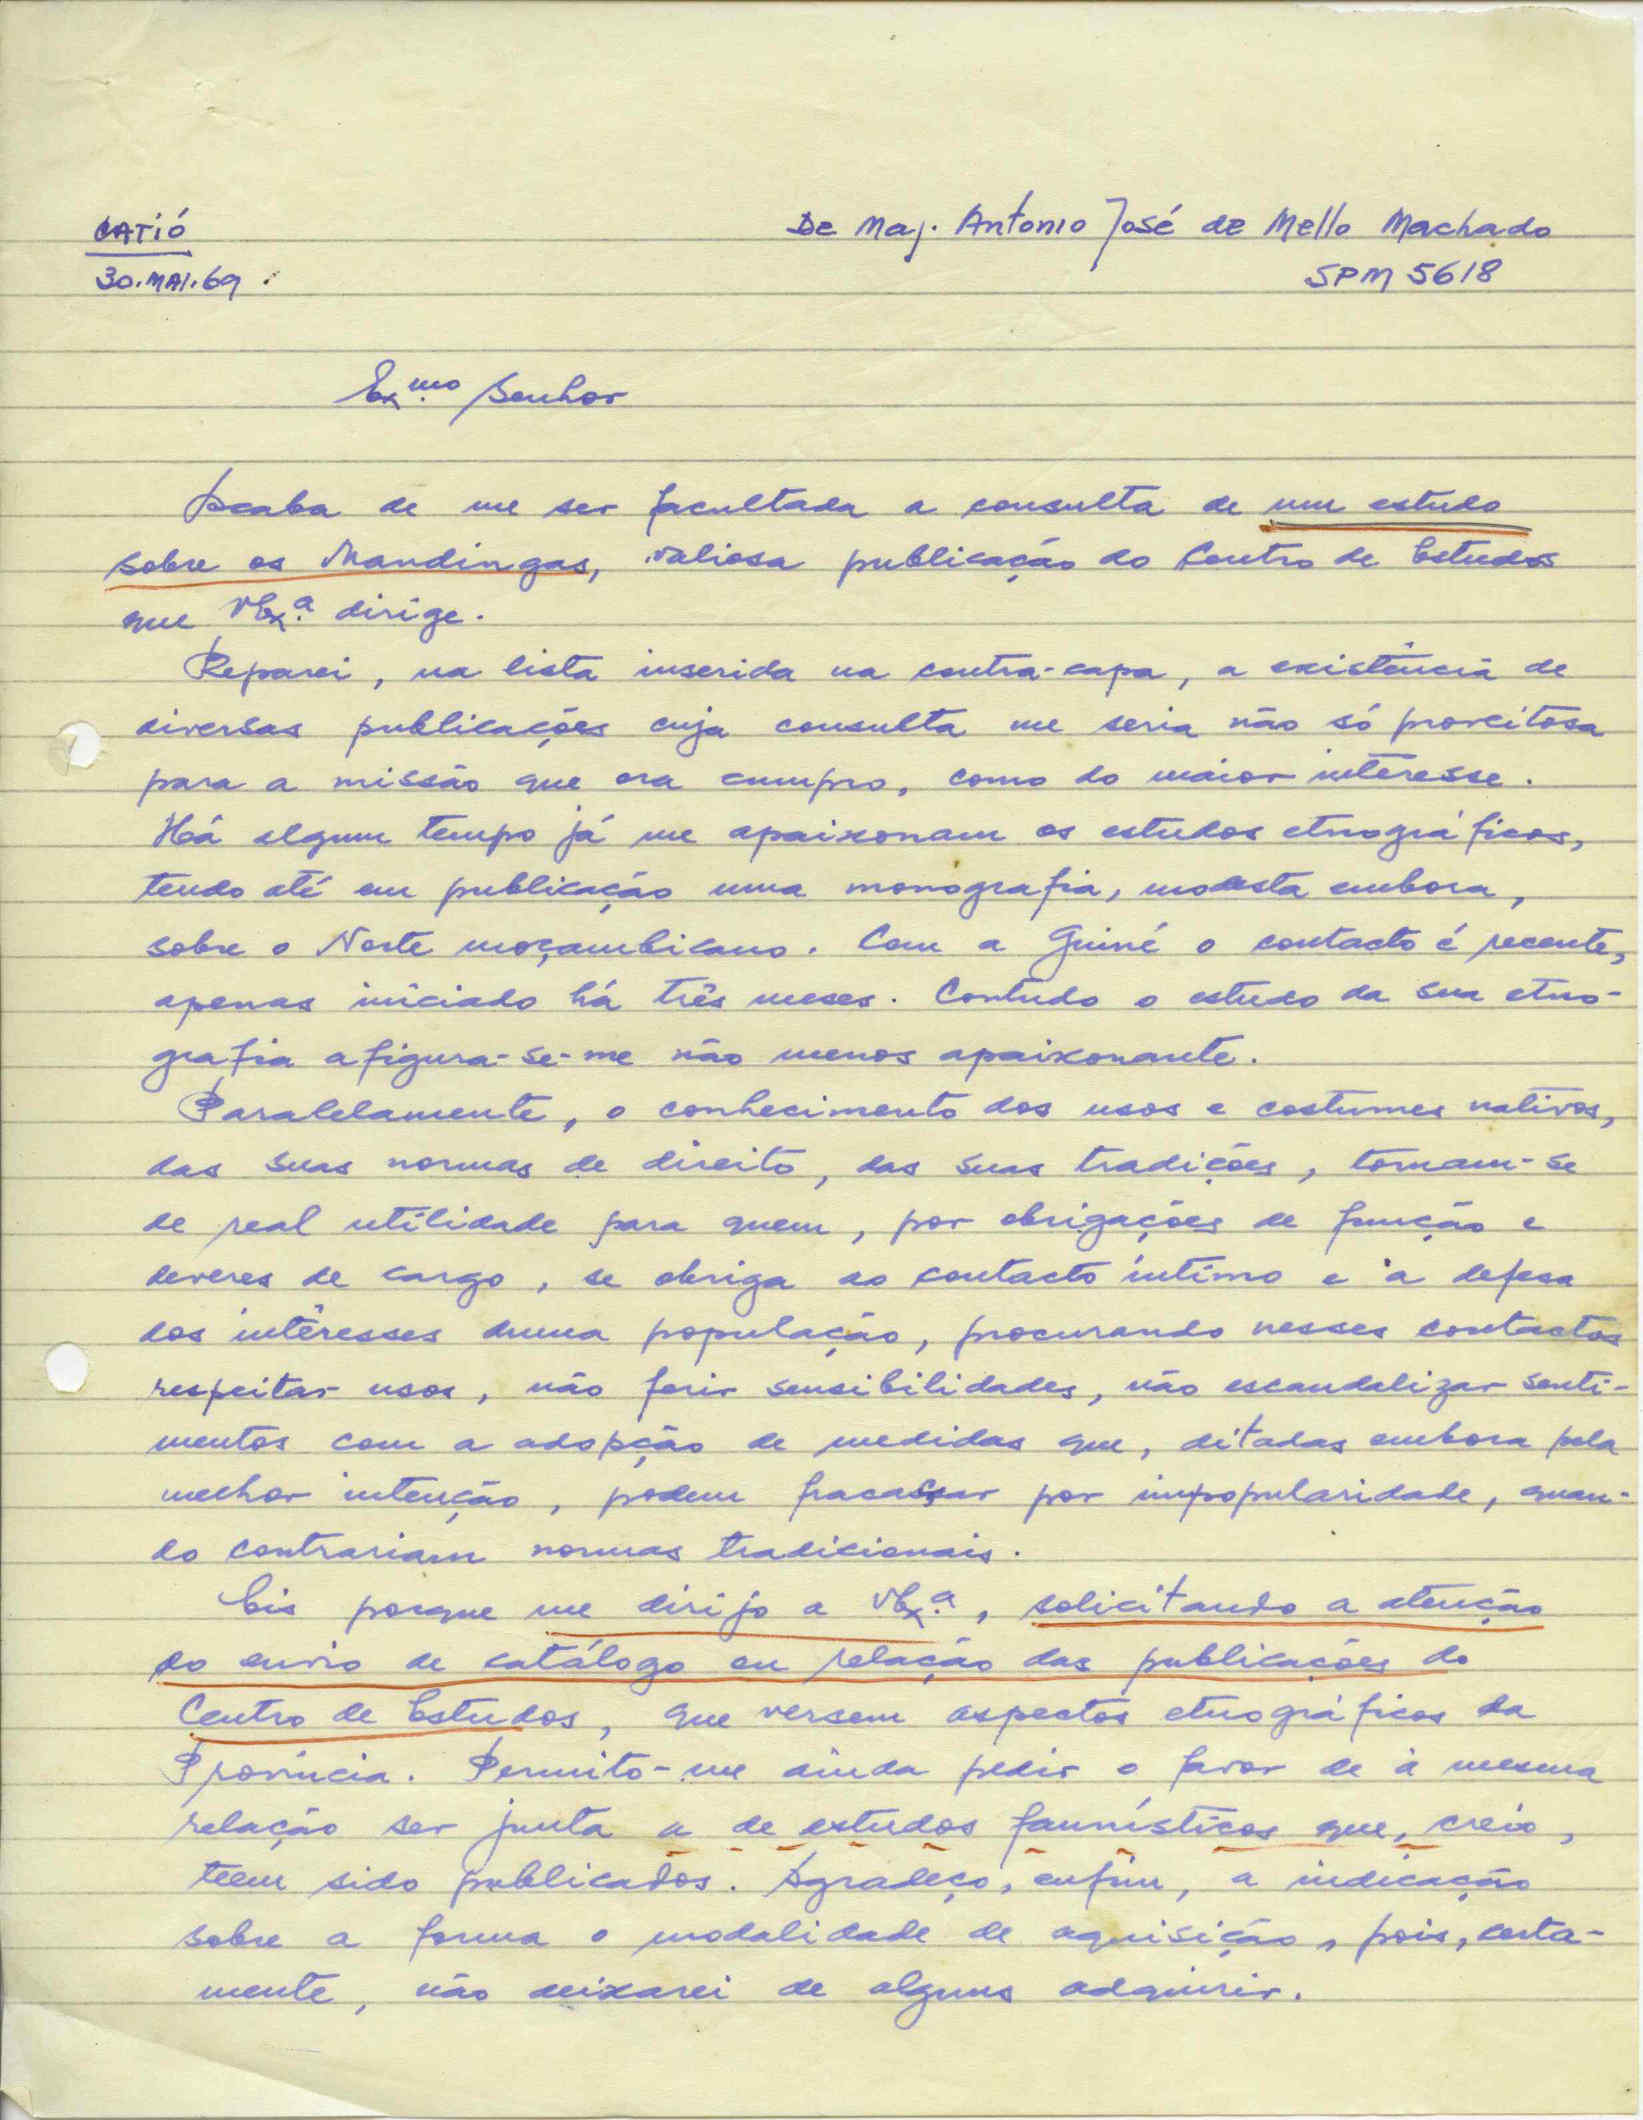 CATIÓ
De Maj. Antonio José de Mello Machado
30.MAI.69.
SPM 5618
Ex.mo Senhor
Acaba de me ser facultada a consulta de um estudo
sobre os Mandingas, valiosa publicação do Centro de Estudos
que VEx.a dirige.
Reparei, na lista inserida na contra-capa, a existência de
diversas publicações cuja consulta me seria não só proveitosa
para a missão que ora cumpro, como do maior interesse.
Há algum tempo já me apaixonam os estudos etnográficos,
tendo até em publicação uma monografia, modesta embora,
sobre o Norte moçambicano. Com a Guiné o contacto é recente,
apenas iniciado há três meses. Contudo o estudo da sua etno-
grafia afigura-se-me não menos apaixonante.
Paralelamente, o conhecimento dos usos e costumes nativos,
das suas normas de direito, das suas tradições, tornam-se
de real utilidade para quem, por obrigações de função e
deveres de cargo, se obriga ao contacto íntimo e à defesa
dos intêresses duma população, procurando nesses contactos
respeitar usos, não ferir sensibilidades, não escandalizar senti-
mentos com a adopção de medidas que, ditadas embora pela
melhor intenção, podem fracassar por impopularidade, quan-
do contrariam normas tradicionais.
Eis porque me dirijo a VEx.a, solicitando a atenção
do envio de catálogo ou relação das publicações do
Centro de Estudos, que versem aspectos etnográficos da
Província. Permito-me ainda pedir o favor de à mesma
relação ser junta a de estudos faunísticos que, creio,
teem sido publicados. Agradeço, enfim, a indicação
sobre a forma e modalidade de aquisição, pois, certa-
mente, não deixarei de alguns adquirir.